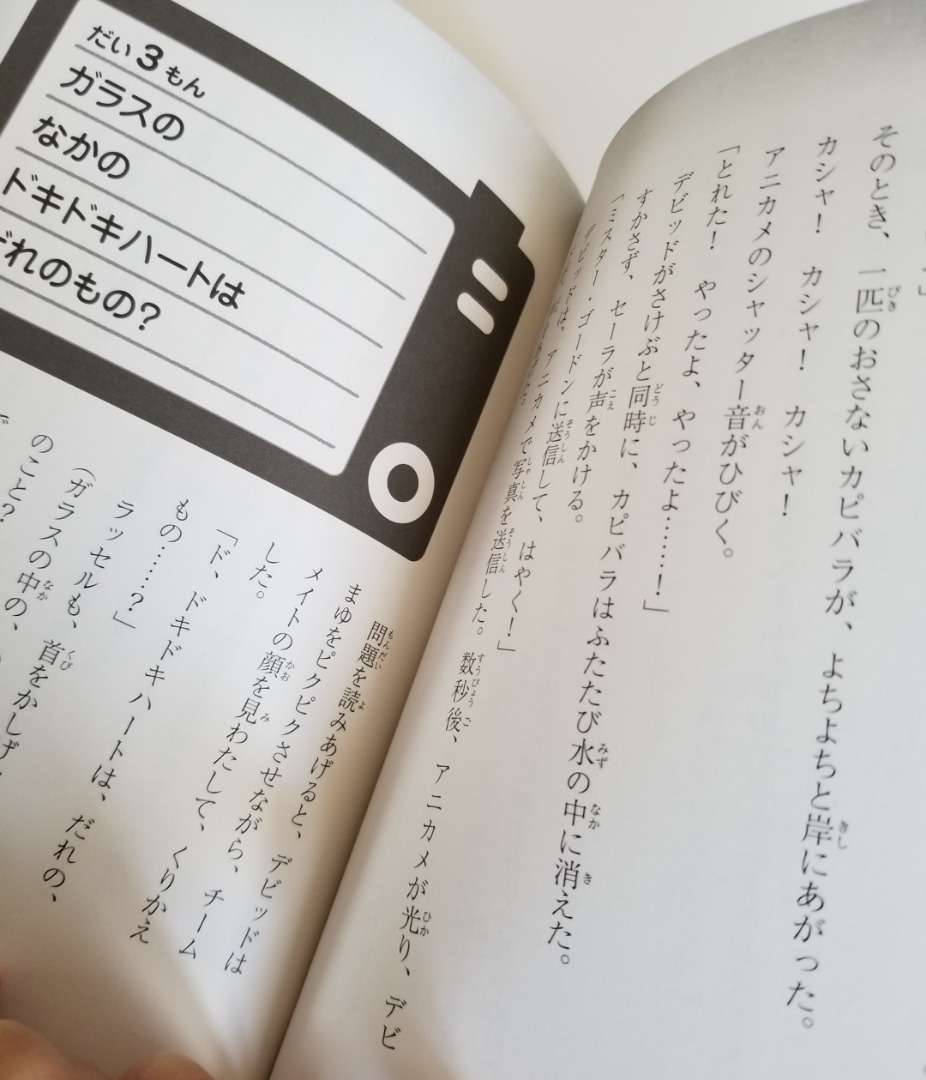 」
そのとき、一匹のおさないカピバラが、よちよちと岸にあがった。
カシャ！　カシャ！　カシャ！
アニカメのシャッター音がひびく。
「とれた！　やったよ、やったよ……！」
デビッドがさけぶと同時に、カピバラはふたたび水の中に消えた。
すかさず、セーラが声をかける。
「ミスター・ゴードンに送信して、はやく！」
デビッドは、アニカメで写真を送信した。数秒後、アニカメが光り、デビ
だい3もん
ガラスの
なかの
ドキドキハートは
だれのもの？
問題を読みあげると、デビッドは
まゆをピクピクさせながら、チーム
メイトの顔を見わたして、くりかえ
した。
「ド、ドキドキハートは、だれの、
もの……？」
ラッセルも、首をかしげ、
（ガラスの中の、
のこと？